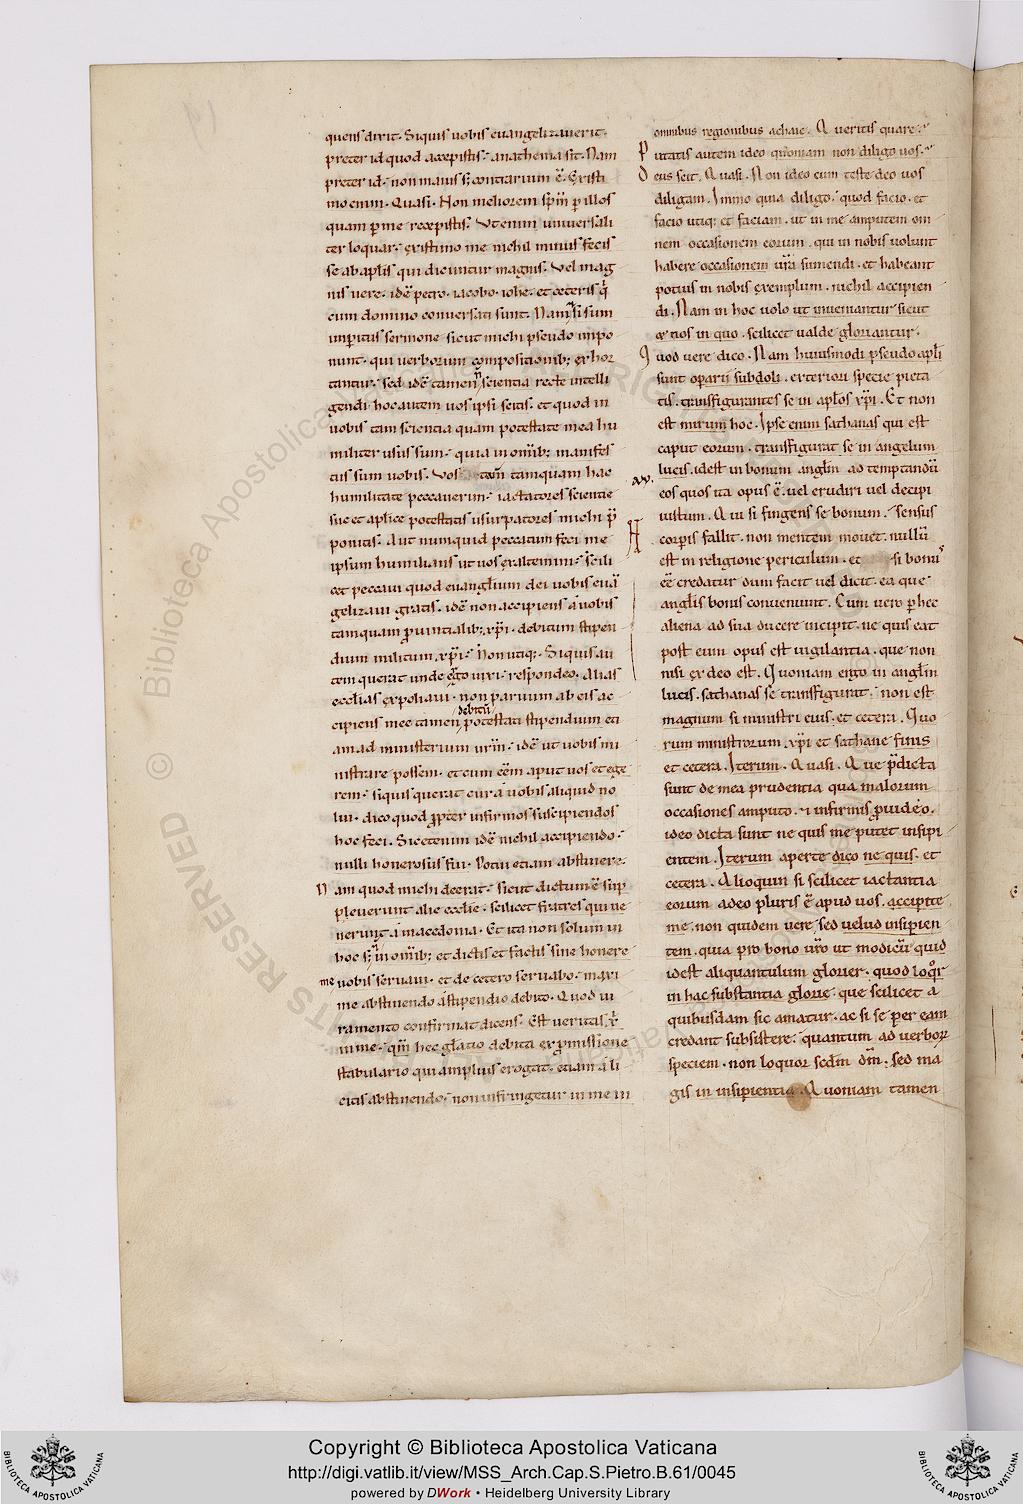 quens dixit. Siquis uobis euangelizauerit.
preter id quod accepistis. anathema sit. Nam
preter id. non maius s; contrarium ē. Xristi
mo enim. Quasi. Non meliorem sp̄m p illos
quam p me recepistis. Vt enim uniuersali
ter loquar. existimo me nichil minus fecis
se ab apl̄is qui dicuntur magnis. Vel mag
nis uere. idē petro. iacobo. ioh̄e. et ceteris q̄
cum domino conuersati sunt. Nam & si sum
imperitus sermone sicut michi pseudo inpo
nunt. qui uerborum compositionib; exhor
tantur. sed idē tamen n̄ scientia recte intelli
gendi hoc autem uos ipsi scitis. et quod in
uobis tam scientia quam potestate mea hu
militer usus sum. quia in om̄ib; manifes
tus sum uobis. Vos tam̄ tamquam hac
humilitate peccauerim. iactatores scientie
sue et aplice potestatis usurpatores michi p̄
ponitis. Aut numquid peccatum feci me
ipsum humilians ut uos exaltemini. scili
cet peccaui quod euanglium dei uobis euā
gelizaui gratis. idē non accipiens a uobis
tamquam prouintialib; xp̄i. debitum stipen
dium militum xp̄i. Non utiq;. Siquis au
tem querat unde ergo uixi. respondeo. Alias
ecclias expoliaui. non paruum ab eis ac
debitū
cipiens mee tamen potestati stipendium eti
am ad ministerium ur̄m. idē ut uobis mi
nistrare possem. et cum eēm aput uos et ege
rem. siquis querat cur a uobis aliquid no
lui. dico quod propter infirmos suscipiendos
hoc feci. Sic etenim idē nichil accipiendo.
nulli honerosus fui. Potui etiam abstinere.
Nam quod michi deerat. sicut dictum ē sup
pleuerunt alie ecclie. scilicet fratres qui ue
nerunt a macedonia. Et ita non solum in
hoc s; in om̄ib; et dictis et factis sine honere
me uobis seruaui. et de cetero seruabo. maxi
me abstinendo a stipendio debito. Quod iu
ramento confirmat dicens. Est ueritas x̄
in me. qm̄ hec gl̄atio debita ex promissione
stabulario qui amplius erogat. etiam a li
citis abstinendo. non infringetur in me in
omnibus regionibus achaie. Aueritis quare.
Putatis autem ideo quoniam non diligo uos.
Deus scit. Quasi. Non ideo cum teste deo uos
diligam. Immo quia diligo. quod facio. et
facio utiq; et faciam. ut in me amputem om
nem occasionem eorum. qui in nobis uolunt
habere occasionem ur̄a sumendi. et habeant
potius in nobis exemplum. nichil accipien
di. Nam in hoc uolo ut inueniantur sicut
et nos in quo. scilicet ualde gloriantur.
Quod uere dico. Nam huiusmodi pseudo apl̄i
sunt oparii subdoli. exteriori specie pieta
tis. transfigurantes se in apl̄os xp̄i. Et non
est mirum hoc. Ipse enim sathanas qui est
caput eorum. transfigurat se in angelum
lucis. idest in bonum angl̄m ad temptandū
eos quos ita opus ē. uel erudiri uel decipi
iustum. Qui si fingens se bonum. sensus
corpis fallit. non mentem mouet. nullū
est in religione periculum. et si bonus
ēē credatur dum facit uel dicit. ea que
angl̄is bonis conueniunt. Cum uero p hec
aliena ad sua ducere incipit. ne quis eat
post eum opus est uigilantia. que non
nisi ex deo est. Quoniam ergo in angl̄m
lucis. sathanas se transfigurat. non est
magnum si ministri eius. et cetera. Quo
rum ministrorum xp̄i et sathane finis
et cetera. Iterum. Quasi. Que p̄dicta
sunt de mea prudentia qua malorum
occasiones amputo. & infirmis prouideo.
ideo dicta sunt ne quis me putet insipi
entem. Iterum aperte dico ne quis. et
cetera. Alioquin si scilicet iactantia
eorum adeo pluris ē apud uos. accipite
me. non quidem uere sed uelud insipien
tem. quia pro bono ur̄o ut modicū quid
idest aliquantulum glorier. quod loqr
in hac substantia glorie. que scilicet a
quibusdam sic amatur. ac si se per eam
credant subsistere. quantum ad uerborum
speciem. non loquor scdm̄ dm̄. sed ma
gis in insipientia. Quoniam tamen
Copyright © Biblioteca Apostolica Vaticana
http://digi.vatlib.it/view/MSS_Arch.Cap.S.Pietro.B.61/0045
powered by DWork • Heidelberg University Library